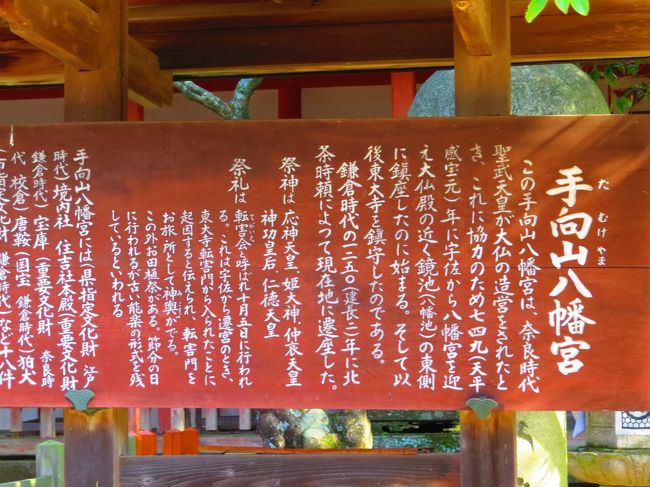 手向山八幡宮
たむけやま
この手向山八幡宮は、奈良時代
聖武天皇が大仏の造営をされたと
き、これに協力のため七四九(天平
感宝元)年に宇佐から八幡宮を迎
え大仏殿の近く鏡池(八幡池)の東側
に鎮座したのに始まる。そして以
後東大寺を鎮守したのである。
鎌倉時代の一二五〇(建長二)年に北
条時頼によつて現在地に遷座した。
祭神は 応神天皇、姫大神、仲哀天皇
神功皇后、仁徳天皇
祭礼は 転害会と呼ばれ十月五日に行われ
る。これは宇佐から遷宮のとき、
東大寺転害門から入られたことに
起因すると伝えられ、転害門を
お旅所として神輿がでる。
この外お田植祭がある。節分の日
に行われるが古い能楽の形式を残
しているといわれる
手向山八幡宮には「県指定文化財 江戸
時代)境内社 住吉社本殿(重要文化財
鎌倉時代)宝庫(重要文化財 奈良時
代 校倉)唐鞍(国宝 鎌倉時代)狛犬
鎌倉時代)など十八件